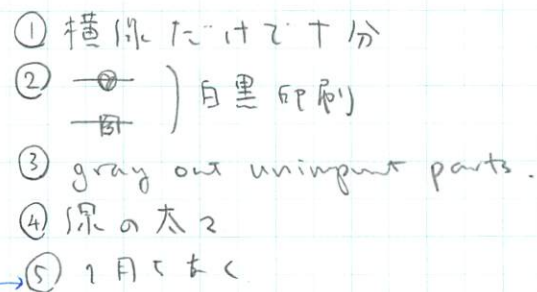 ① 横線だけで十分
② 白黒印刷
③ gray out unimpunt parts.
④ 線の太さ
⑤ く